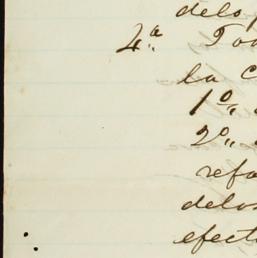 delos
4ª Tod
la c
1º„
2º„
refo
delos
efect